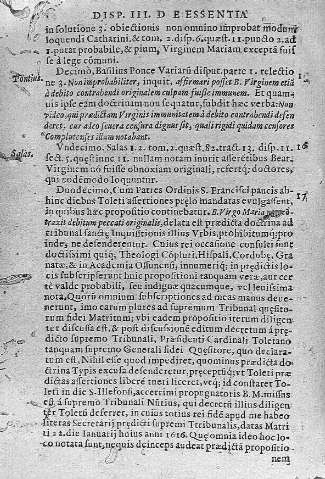 DISP. III. DE ESSENTIA
in solutione 3. obiectionis non omnino improbat modum
loquendi Catharini, & tom. 2. disp. 6. quæst. 11. puncto 2. ad
1. putat probabile, & pium, Virginem Mariam exceptã fuis
se à lege cõmuni.
Decimo, Basilius Ponce Variarũ disput. parte 1. relectio
Pontius.
ne 3. Non improbabiliter, inquit, affirmari posset B. Virginem etiã
à debito contrahendi originalem culpam fuisse immunem. Et quam
uis ipse eam doctrinam non sequatur, subdit hæc verba: Non
video, qui prædictam Virginis immunitatem à debito contrahendi defen
deret, cur alio seuera censura dignus sit, quali rigidi quidam censores
Complutenses illum notabant.
Vndecimo, Salas 1. 2. tom. 2. quæst. 82. tract. 13. disp. 11.
16
Salas.
sect. 5. quæstione 11. nullam notam inurit asserẽtibus Beat.
Virginem nõ fuisse obnoxiam originali, refertq; doctores,
qui eodem modo loquuntur.
Duodecimo, Cum Patres Ordinis S. Francisci paucis ab-
17
hinc diebus Toleti assertiones prælo mandatas euulgassent,
in quibus hæc propositio continebatur. B. Virgo Maria
traxit debitum peccati originalis, delata est prædicta doctrina ad
tribunal sanctæ Inquisitionis illius Vrbis, prohibitumq; pro
inde, ne defenderetur. Cuius rei occasione consulti sunt
doctissimi quiq; Theologi Cõpluti, Hispali, Cordubæ, Gra
natæ, & in Academia Ossunensi, innumeriq; in prædictis lo-
cis subscripserunt huic propositioni tanquam veræ, aut cer
tè valdè probabili, seu indignæ quacumque, vel leuissima
nota. Quorũ omnium subscriptiones ad meas manus deue-
nerunt, imo earum plures ad supremum Tribunal quæsito-
rum fidei Matriti; vbi eadem propositio iterum diligen-
ter discussa est, & post discussionẽ editum decretum à præ-
dicto supremo Tribunali, Præsidenti Cardinali Toletano
tanquam supremo Generali fidei Quæsitore, quo declara-
tum est, Nihil esse quod impediret, quominus prædicta do-
ctrina Typis excusa defenderetur, præceptũq; vt Toleti præ
dictas assertiones liberè tueri liceret, vtq; id constaret To-
leti in die S. Illefonsi, accerrimi propugnatoris B. M. missus
est, à supremo Tribunali Nũtius, qui decretũ illius diligen-
ter Toleti deferret, in cuius totius rei fidẽ apud me habeo
literas Secretarij prædicti supremi Tribunalis, datas Matri
ti 22. die Ianuarij huius anni 1616. Quę omnia ideo hoc lo-
co notata sunt, nequis deinceps audeat prædictã propositio-
nem